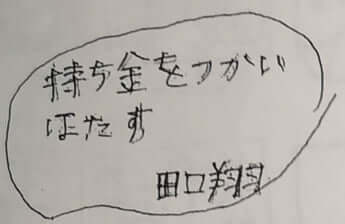 持ち金をつかい
はたす
田口翔